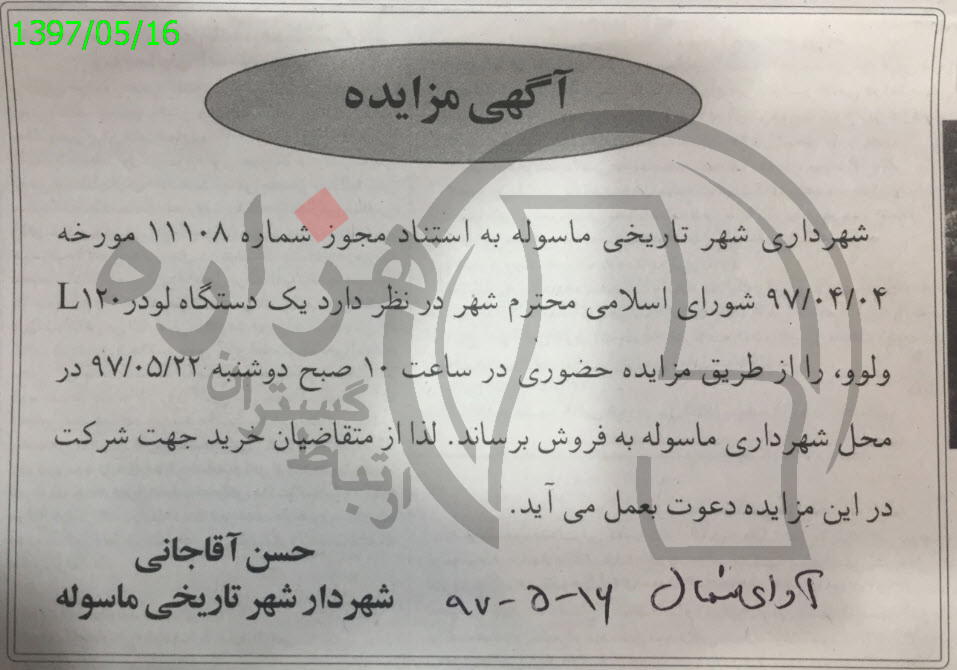 1397/05/16
آگهی مزایده
شهرداری شهر تاریخی ماسوله به استناد مجوز شماره ۱۱۱۰۸ مورخه
۹۷/۰۴/۰۴ شورای اسلامی محترم شهر در نظر دارد یک دستگاه لودر L۱۲۰
ولوو، را از طریق مزایده حضوری در ساعت ۱۰ صبح دوشنبه ۹۷/۰۵/۲۲ در
محل شهرداری ماسوله به فروش برساند. لذا از متقاضیان خرید جهت شرکت
در این مزایده دعوت بعمل می آید.
حسن آقاجانی
شهردار شهر تاریخی ماسوله
آوای شمال ۱۶-۵-۹۷
هزاره
گستران
ارتباط